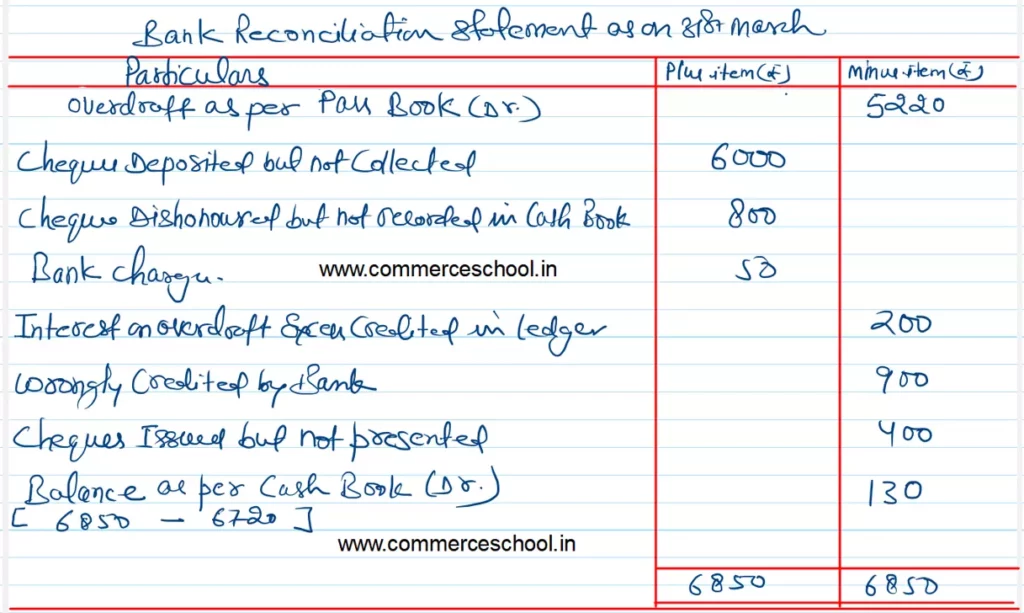 Bank Reconciliation Statement as on 31st march
Particulars Plus item (₹) minus item (₹)
overdraft as per Pass Book (Dr.) 5220
Cheques Deposited but not Collected 6000
Cheques Dishonoured but not recorded in Cash Book 800
Bank charges. www.commerceschool.in 50
Interest on overdraft Excess Credited in ledger 200
wrongly Credited by Bank 900
Cheques Issued but not presented 400
Balance as per Cash Book (Dr.) 130
[ 6850 — 6720 ]
www.commerceschool.in
6850 6850